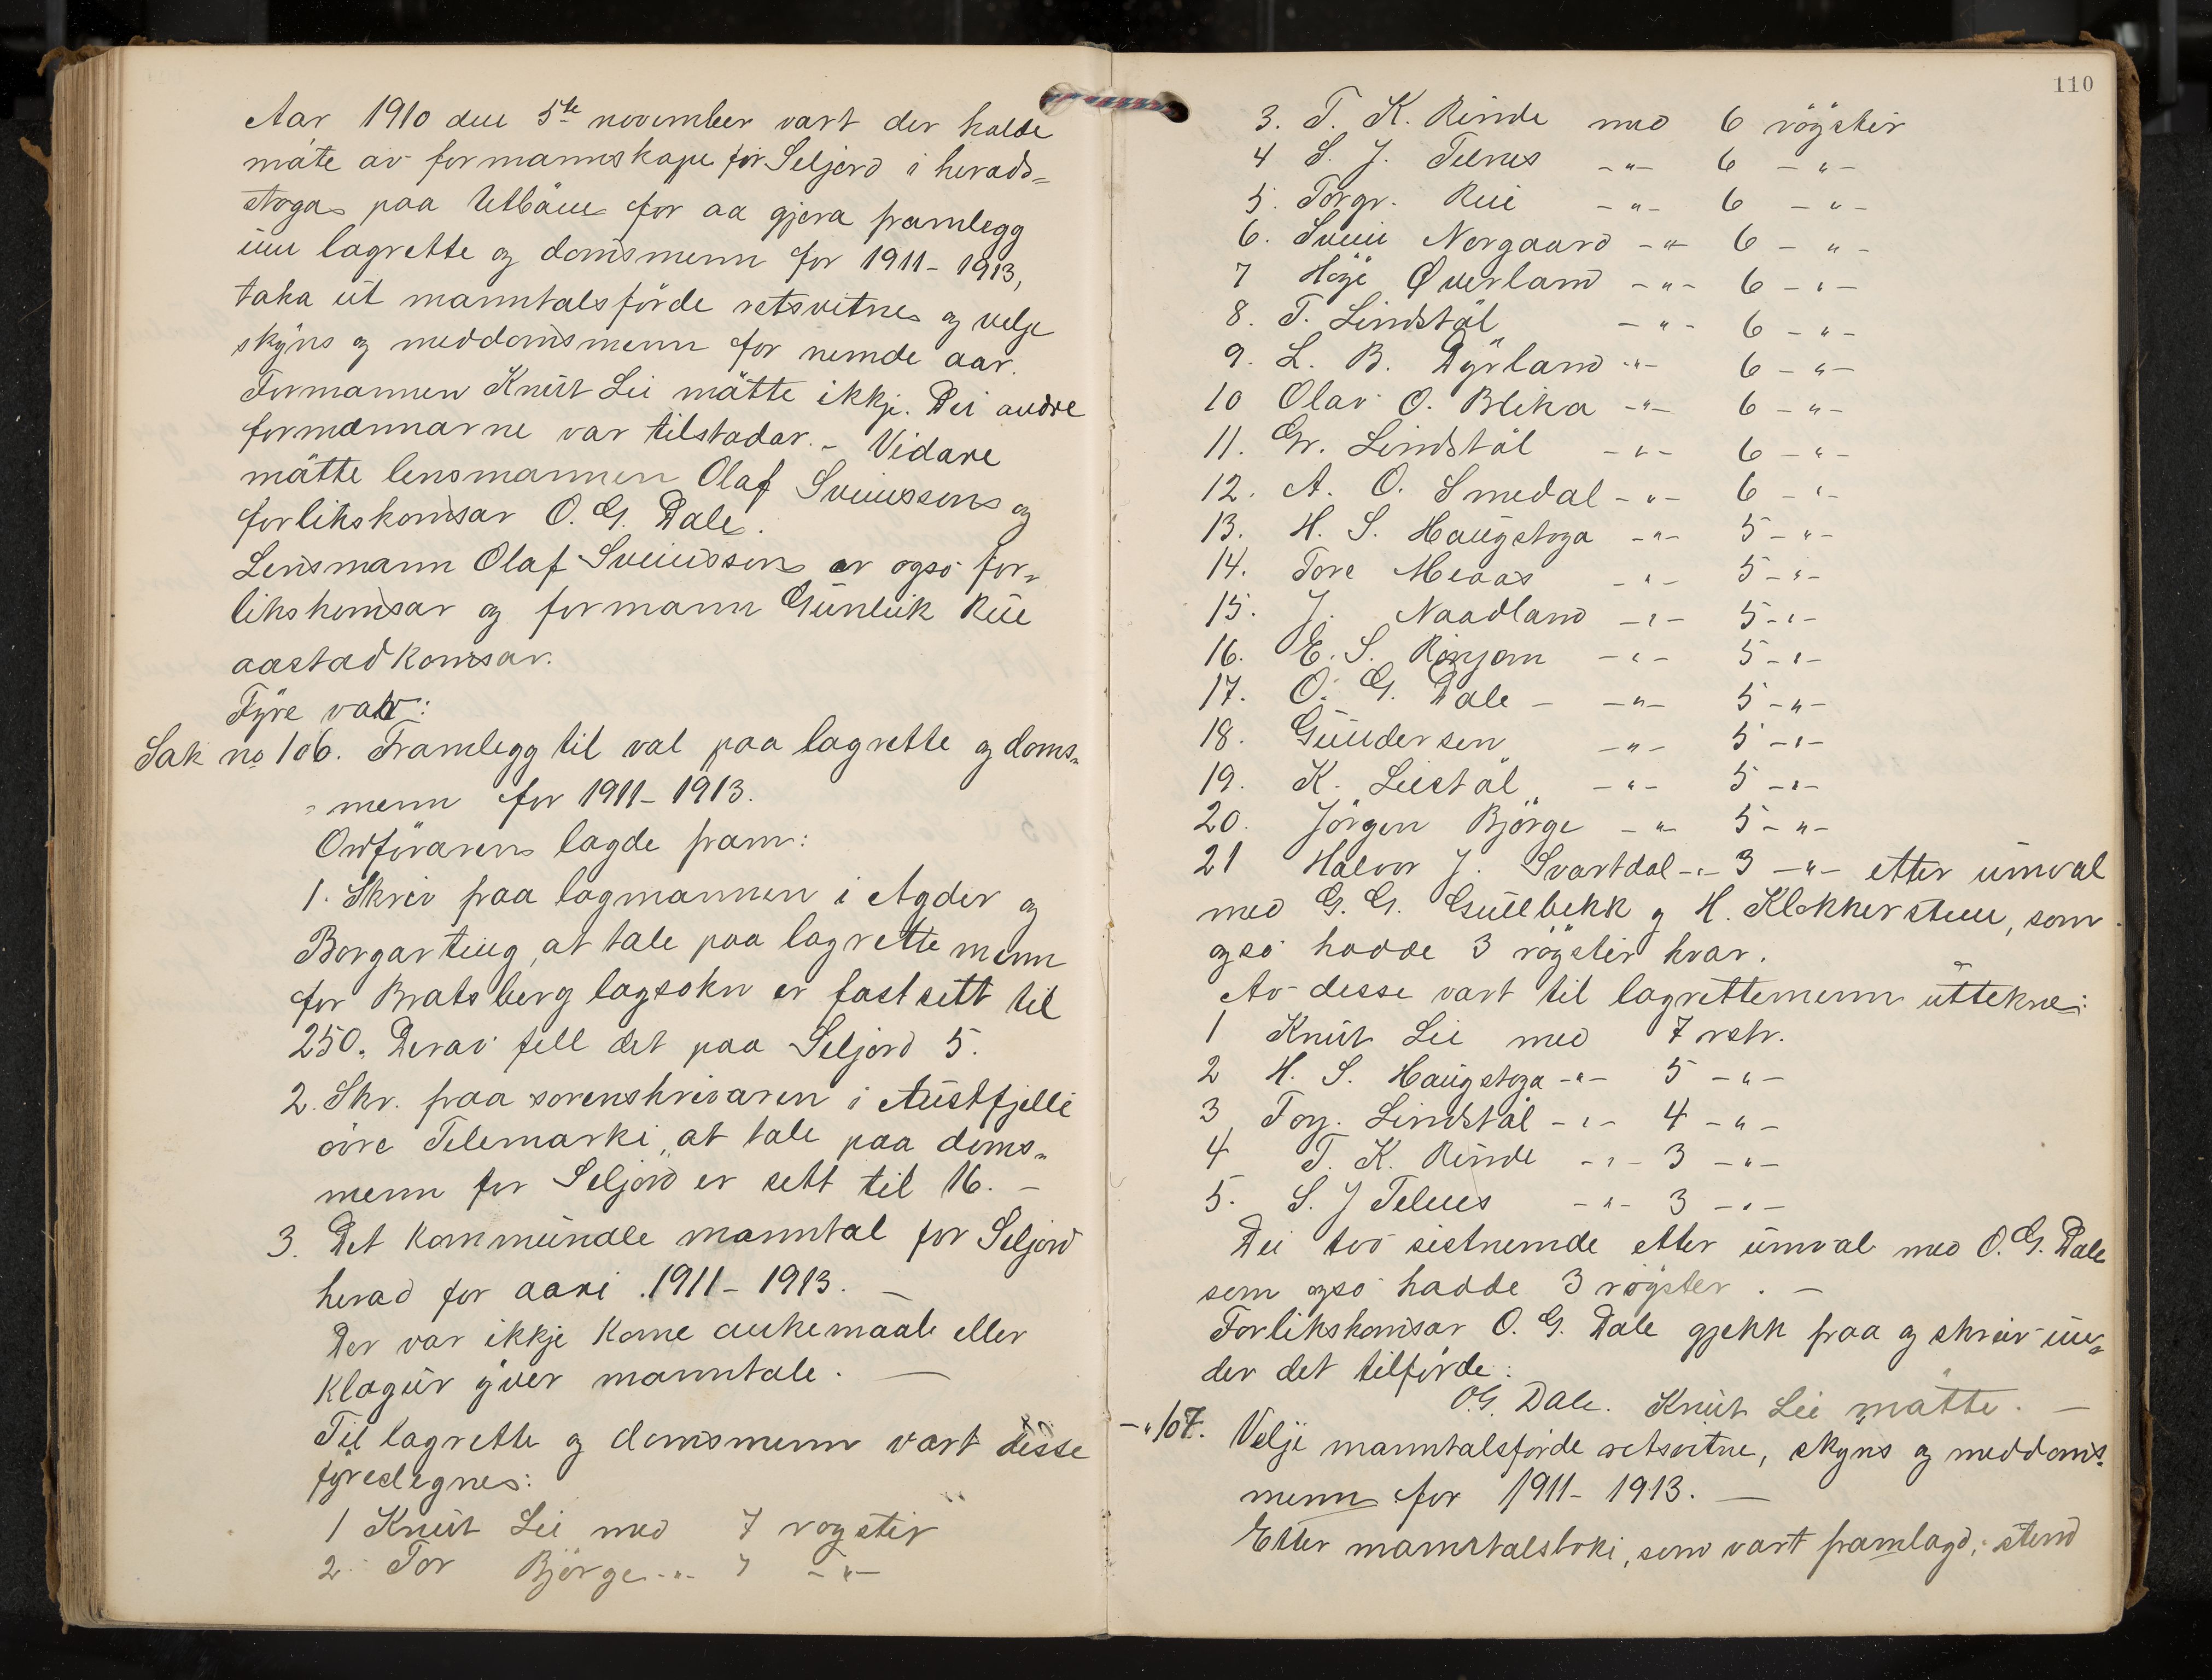 Aar 1910 den 5te november vart der halde
møte av formannskape for Seljord i herads=
stoga paa Utbøen for aa gjera framlegg
um lagrette og domsmenn for 1911-1913,
taka ut manntalsførde retsvitne og velge
skyns og meddomsmenn for nemde aar.
Formannen Knut Lie møtte ikkje. Dei andre
formennarne var tilstadar. - Vidare
møtte lensmannen Olaf Sveinsson og
forlikskomsar O. G. Dale.
Lensmann Olaf Sveinsson er ogso for=
likskomsar og formann Gunleik Rue
aastadkomsar.
Fyre var:
Sak no 106. Framlegg til val paa lagrette og doms=
=menn for 1911-1913.
Ordføraren lagde fram:
1. Skriv fraa lagmannen i Agder og
Borgarting, at tale paa lagrettemenn
for Bratsberg lagsokn er fastsett til
250. Derav fell det paa Seljord 5.
2. Skr. fraa sorenskrivaren i Austfjelli
øvre Telemarki, at tale paa doms=
menn for Seljord er sett til 16. -
3. Det kommundle manntal for Seljord
herad for aari 1911-1913. -
Der var ikkje kome ankemaal eller
klagur yver manntale. -
Til lagrette og domsmenn vart disse
fyreslegne:
1 Knut Lie med 7 røgster
2. Tor Bjørge -"- 7 -"-
110
3. T. K. Rinde med 6 røgster
4 S. J. Telnes -"- 6 -"-
5. Torgr. Rue -"- 6 -"-
6. Svein Norgaard -"- 6 -"-
7 Høge Øverland -"- 6 -"-
8. T. Lindstøl -"- 6 -"-
9. L. B. Dyrland -"- 6 -"-
10 Olav O. Bleka -"- 6 -"-
11. Gr. Lindstøl -"- 6 -"-
12. A. O. Smedal -"- 6 -"-
13. H. S. Haugstoga -"- 5 -"-
14. Tore Meaas -"- 5 -"-
15. J. Naadland -"- 5 -"-
16. E. S. Rønjom -"- 5 -"-
17. O. G. Dale - -"- 5 -"-
18. Gundersen -"- 5 -"-
19. K. Liestøl -"- 5 -"-
20. Jørgen Bjørge -"- 5 -"-
21 Halvor J. Svartdal -"- 3 -"- etter umval
med G. G. Gullbekk og H. Klokkersteen, som
ogso hadde 3 røgster kvar.
Av desse vart til lagrettemenn uttekne:
1 Knut Lie med 7 rstr.
2 H. S. Haugstoga -"- 5 -"-
3 Torg. Lindstøl -"- 4 -"-
4 T. K. Rinde -"- 3 -"-
5. S. J Telnes -"- 3 -"-
Dei tvo sistnemde etter umval med O. G. Dale
som ogso hadde 3 røgster. -
Forlikskomsar O. G. Dale gjekk fraa og skreiv un=
der det tilførde:
O.G. Dale. Knut Lie møtte. -
-"107. Velje manntalsførde retsvitne, skyns og meddoms=
menn for 1911-1913. -
Etter manntalsboki, som vart framlagd, stend